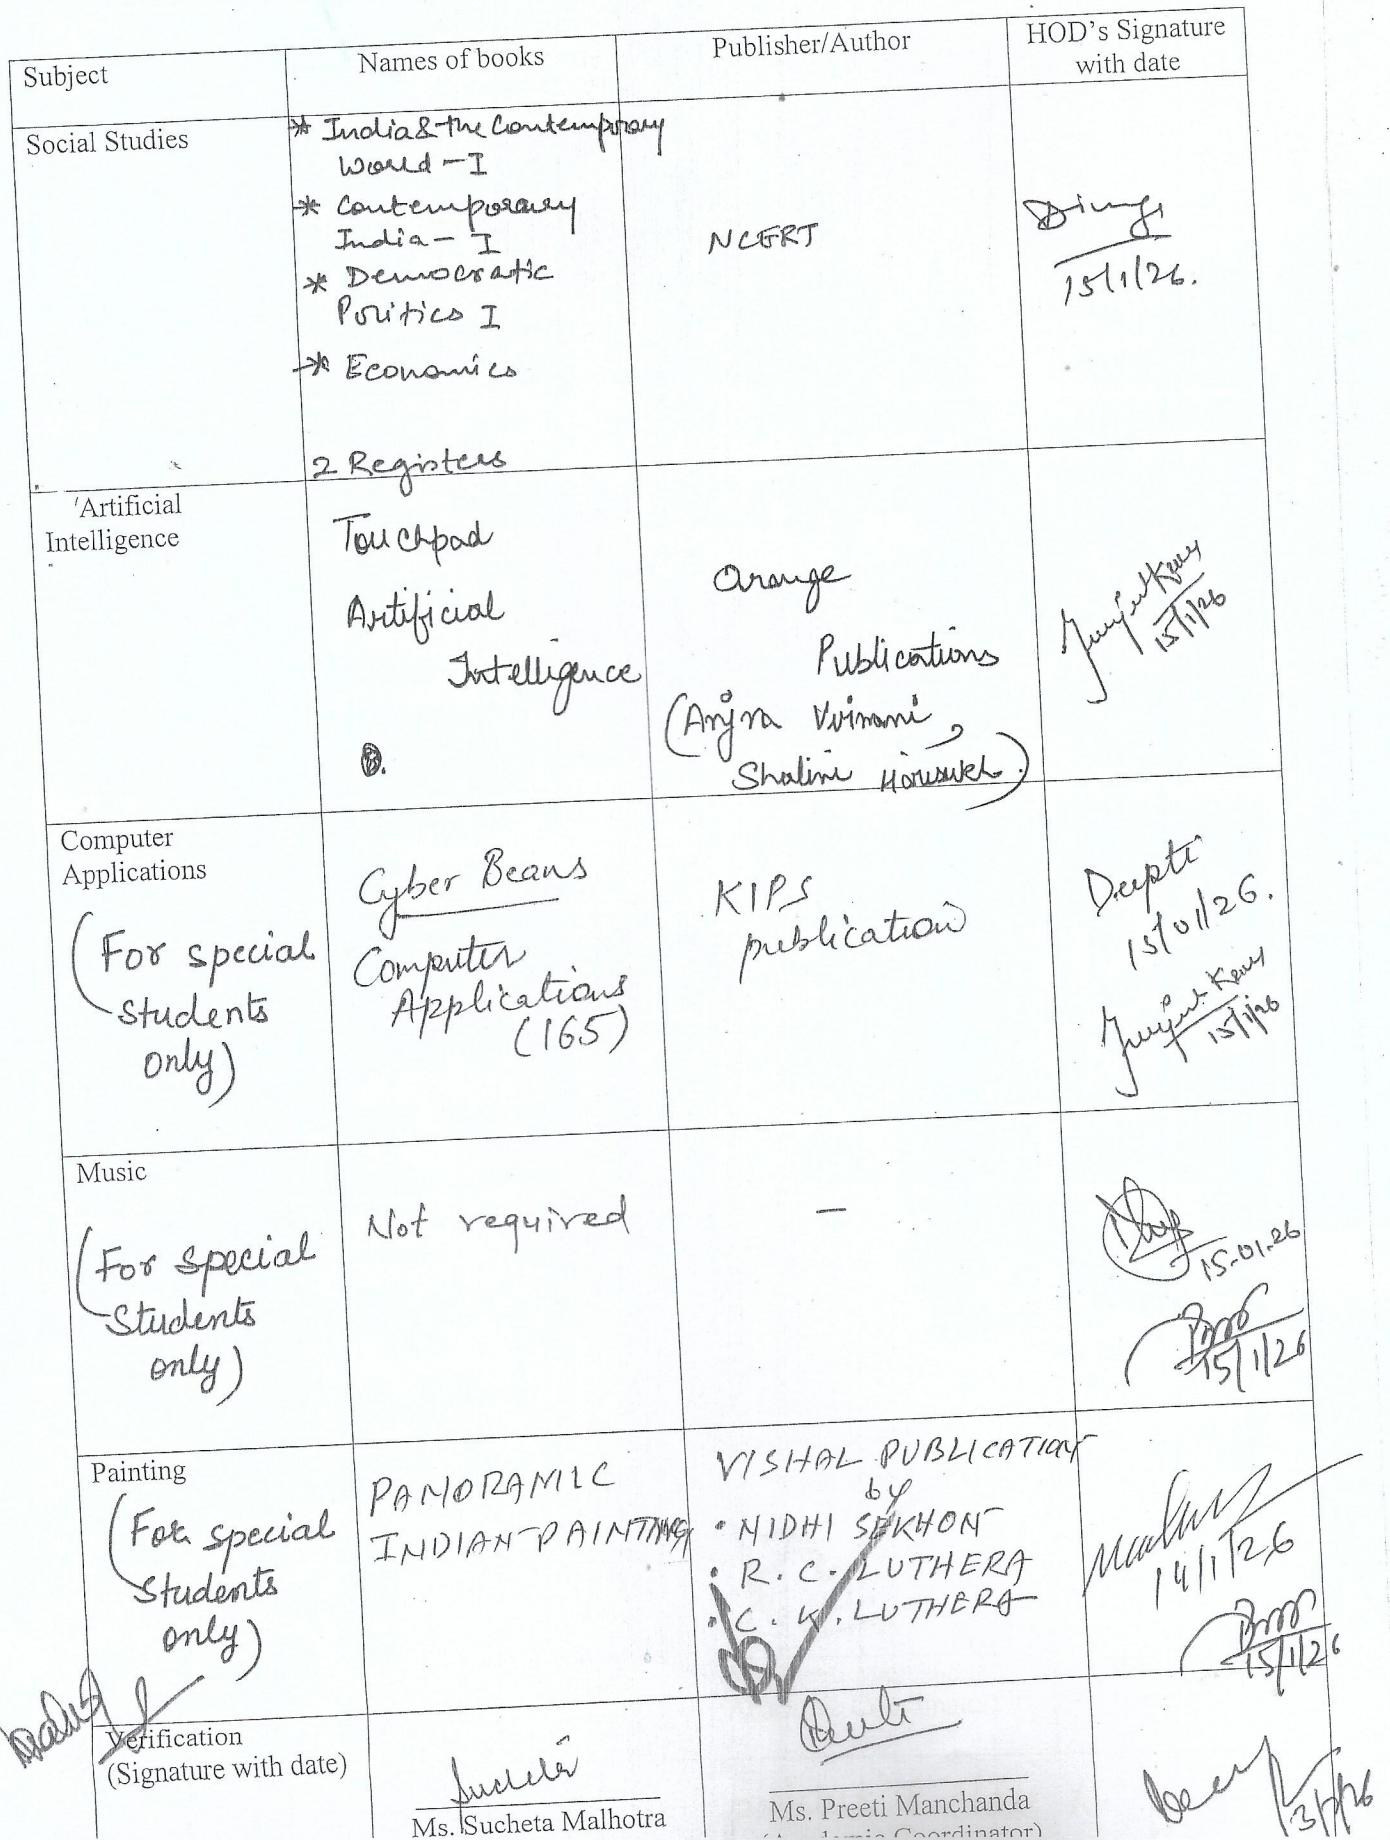 Subject
Names of books
Publisher/Author
HOD's Signature
with date
Social Studies
* India & the Contemporary
World - I
* Contemporary
India - I
* Democratic
Politics I
* Economics
2 Registers
NCERT
15/1/26.
Artificial
Intelligence
Touchpad
Artificial
Intelligence
Orange
Publications
Shalini
15/1/26
Computer
Applications
(For special
Students
only)
Cyber Beans
Computer
Applications
(165)
KIPS
publication
Deepti
15/01/26.
15/1/26
Music
(For special
Students
only)
Not required
—
15.01.26
15/1/26
Painting
(For special
Students
only)
PANORAMIC
INDIAN PAINTING
VISHAL PUBLICATION
by
• NIDHI SEKHON
• R. C. LUTHERA
• C. K. LUTHERA
14/1/26
15/1/26
Verification
(Signature with date)
Sucheta
Ms. Sucheta Malhotra
Ms. Preeti Manchanda
(Academic Coordinator)